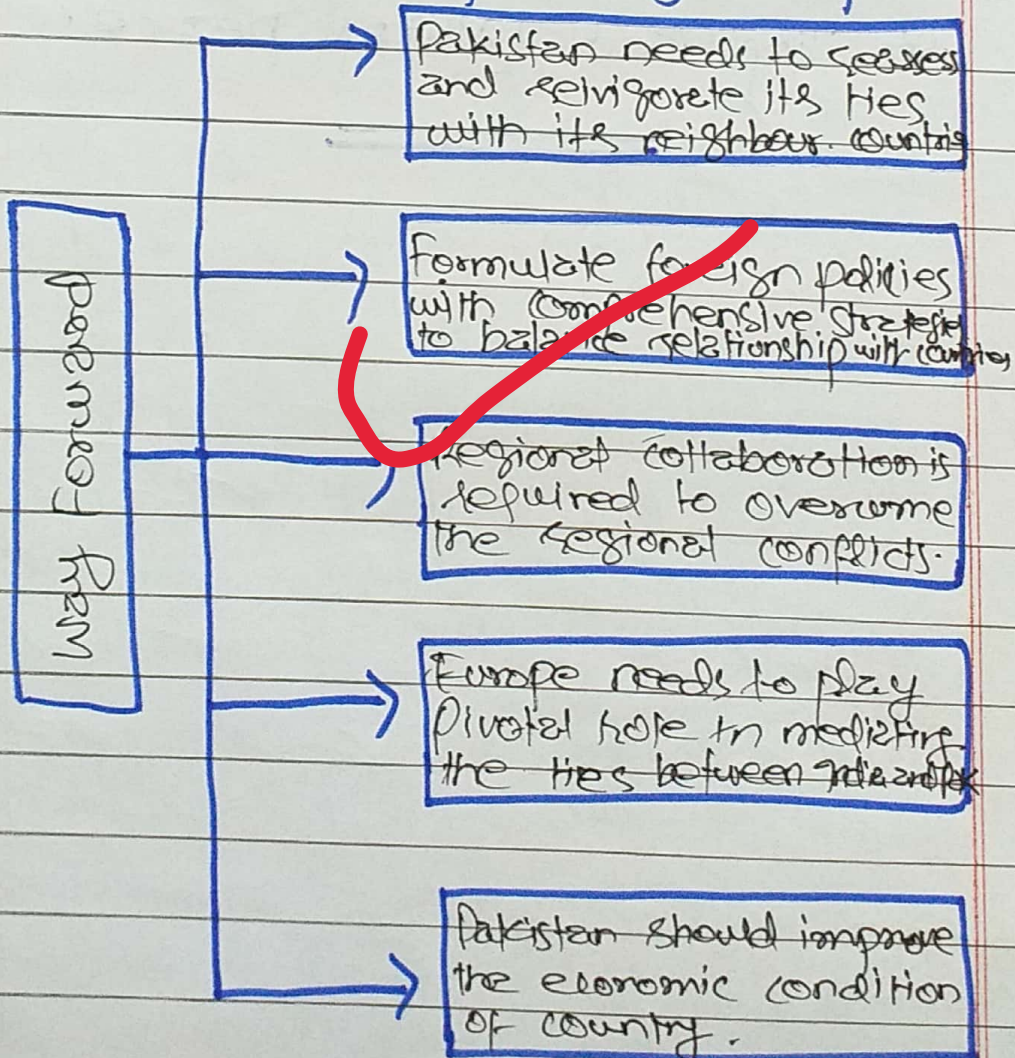 Way Forward
Pakistan needs to seassess
and reivigorete its ties
with its neighbour countris
Formulate foreign policies
with comprehensive strategies
to balance relationship with countries
Regional collaboration is
required to overcome
the regional conflicts.
Europe needs to play
Pivotal role in mediating
the ties between India and Pak
Pakistan should improve
the economic condition
of country.